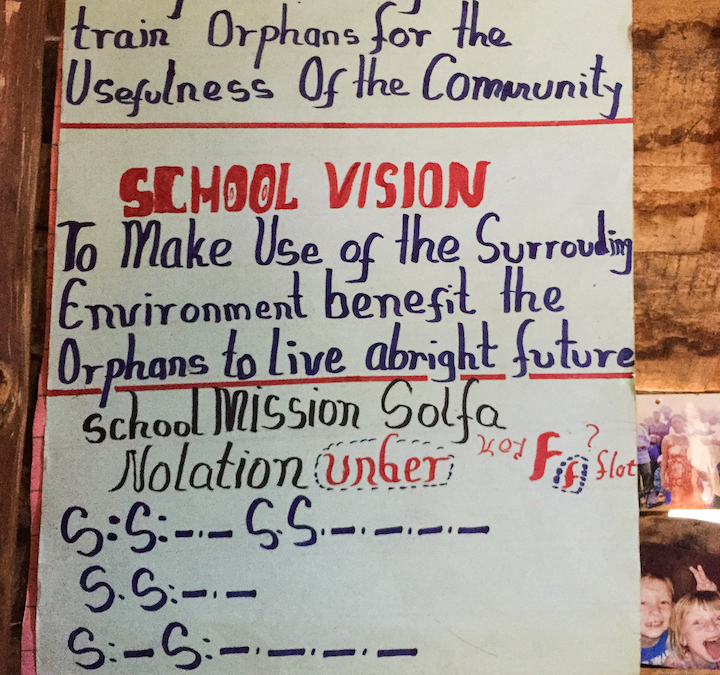 train Orphans for the
Usefulness Of the Community
SCHOOL VISION
To Make Use of the Surrouding
Environment benefit the
Orphans to Live abright future
school Mission Solfa
Nolation under key F f ? flat
S:S:-.- S.S:-.-.-.-
S.S:-.-
S:-S:-.-.-.-